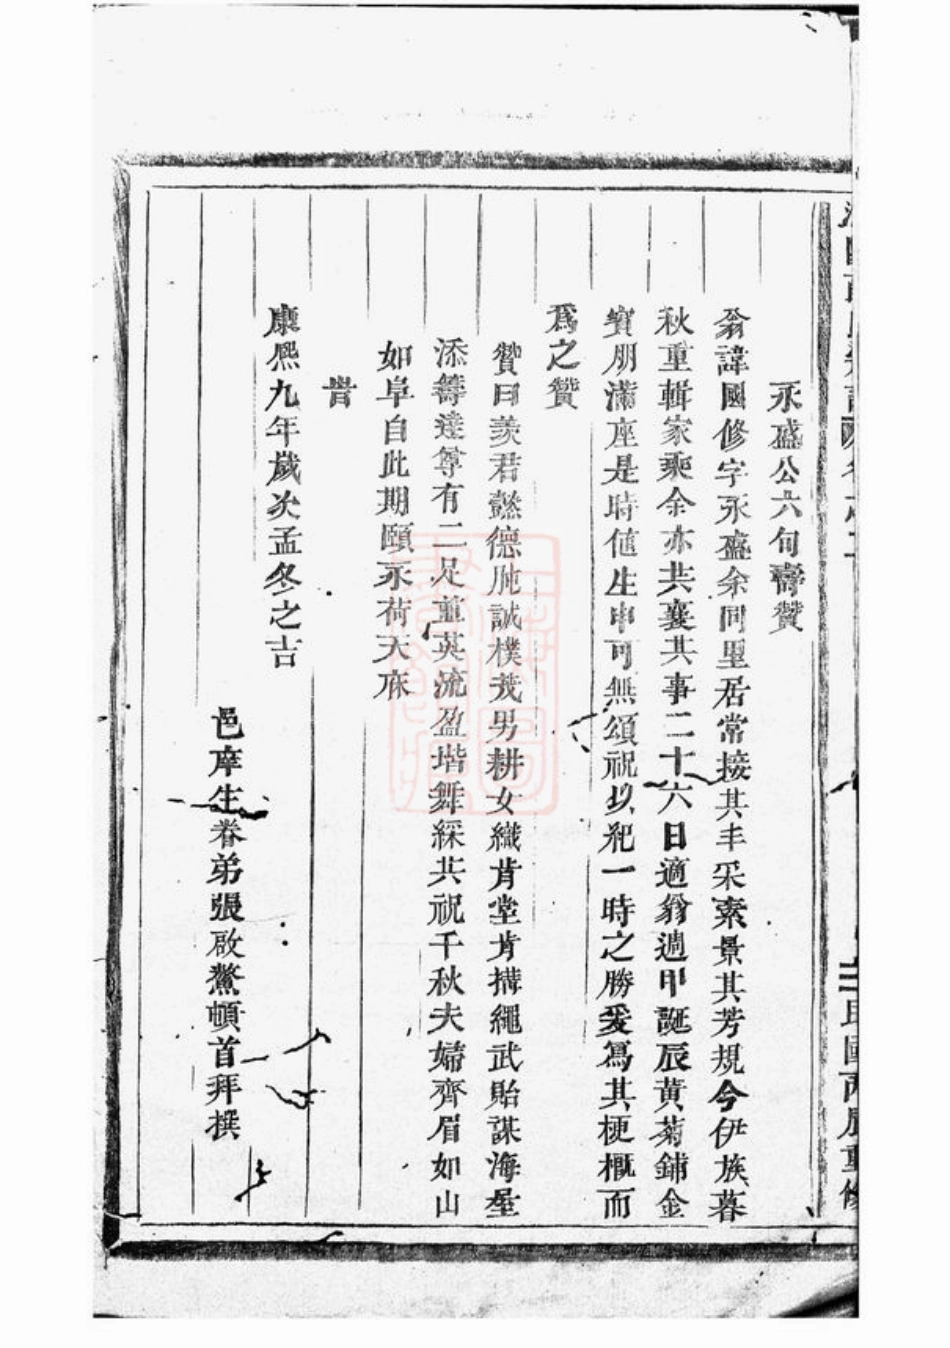 永盛公六旬壽贊
翁諱國修字永盛余同里居常接其丰采素景其芳規今伊族暮
秋重輯家乘余亦共襄其事二十六日適翁週甲誕辰黄菊鋪金
賓朋滿座是時値生申可無頌祝以紀一時之勝爰爲其梗概而
爲之贊
贊曰羨君懿德肫誠樸茂男耕女織肯堂肯搆繩武貽謀海屋
添籌達尊有二足並英流盈堦舞綵共祝千秋夫婦齊眉如山
如阜自此期頤永荷天庥
旹
康熙九年歲次孟冬之吉
邑庠生眷弟張啟鰲頓首拜撰
民國丙辰重修